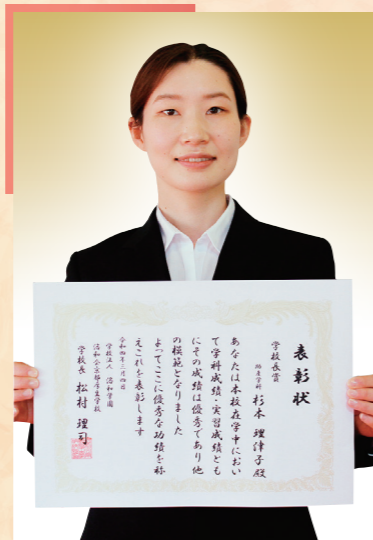 表彰状
学校長賞
助産学科 杉本 理津子殿
あなたは本校在学中におい
て学科成績・実習成績とも
にその成績は優秀であり他
の模範となりました
よってここに優秀な功績を称
えこれを表彰します
令和四年三月四日
学校法人 洛和学園
洛和会京都厚生学校
学校長 松村 理司